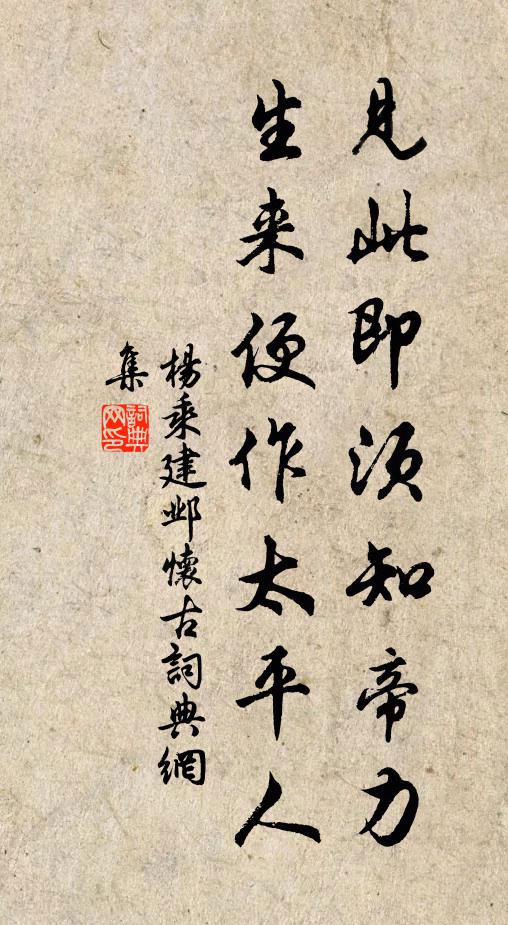 见此即须知帝力
生来便作太平人
楊乘建邺懷古詞典網
集
詞典
网印